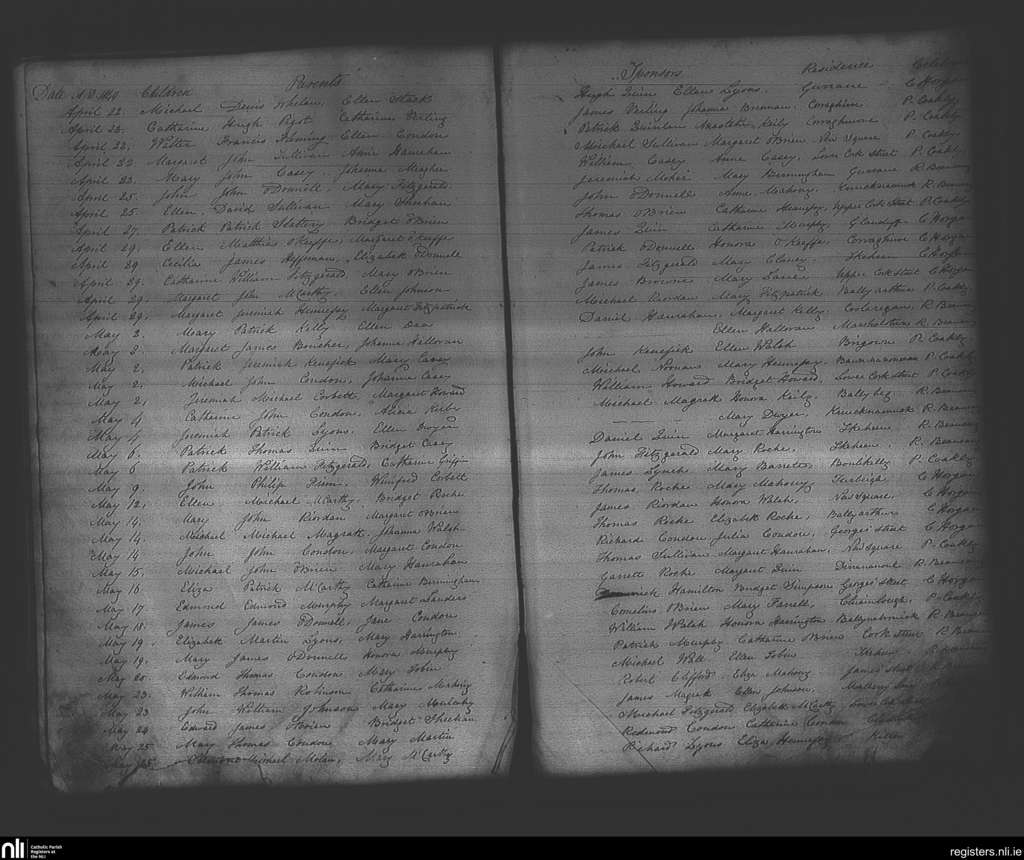 Date A.D. 1840 Children Parents
April 22. Michael Denis Whelan, Ellen Stack
April 22. Catharine Hugh Pigot Catharine Verling
April 22. Walter Francis Fleming Ellen Condon
April 22. Margaret John Sullivan Anne Hanrahan
April 23. Mary John Casey Johanna Meagher
April 25. John John O'Donnell, Mary Fitzgerald
April 25. Ellen David Sullivan Mary Sheehan
April 27. Patrick Patrick Slattery Bridget O'Brien
April 29. Ellen Matthias O'Keeffe, Margaret O'Keeffe
April 29 Cecilia James Heffernan, Elizabeth O'Donnell
April 29. Catharine William Fitzgerald, Mary O'Brien
April 29. Margaret John McCarthy, Ellen Johnson
April 29. Margaret Jeremiah Hennessy Margaret Fitzpatrick
May 2. Mary Patrick Kelly Ellen
May 2. Margaret James Boucher, Johanna Halloran
May 2, Patrick Jeremiah Kenefick Mary Casey
May 2, Michael John Condon, Johanna Casey
May 2, Jeremiah Michael Corbett, Margaret Howard
May 4. Catharine John Condon, Alicia Kirby
May 4. Jeremiah Patrick Lyons, Ellen Dwyer
May 6. Patrick Thomas Quin Bridget Casey
May 6 Patrick William Fitzgerald, Catharine Griffin
May 9. John Philip Winifred Corbett
May 12, Ellen Michael McCarthy, Bridget Roche
May 14. Mary John Riordan Margaret O'Brien
May 14. Michael Michael Magrath, Johanna Walsh
May 14 John John Condon, Margaret Condon
May 15, Michael John O'Brien Mary Hanrahan
May 16 Eliza Patrick McCarthy Catharine Birmingham
May 17. Edmund Edmond Murphy Margaret Landers
May 18. James James O'Donnell, Jane Condon
May 19. Elizabeth Martin Lyons, Mary Harrington
May 19. Mary James O'Donnell Honora Murphy
May 20 Edmond Thomas Condon, Mary Tobin
May 23. William Thomas Robinson Catharine Mahony
May 23 John William Johnson Mary Mulcahy
May 24 Edward James O'Brien Bridget Sheehan
May 25 Mary Thomas Condon, Mary Martin
May 25 Michael Nolan, Mary McCarthy
Sponsors Residence
Hugh Quin Ellen Lyons, Gurrane C Horgan
James Verling Johanna Brennan, Corraghine P. Coakly
Patrick Quinlan Anastatia Keily Corraghmore P. Coakly
Michael Sullivan Margaret O'Brien New Square P. Coakly
William Casey Anne Casey, Lower Cork Street P. Coakly
Jeremiah Maher Mary Birmingham Gurrane R. Brennan
John O'Donnell Anne Mahony, R. Brennan
Thomas O'Brien Catharine Upper Cork Street P. Coakly
James Quin Catharine Murphy Glenduff C Horgan
Patrick O'Donnell Honora O'Keeffe, Corraghine C Horgan
James Fitzgerald Mary Clancy, Skeheen C Horgan
James Browne Mary Upper Cork Street C Horgan
Michael Riordan Mary Fitzpatrick Ballyarthur P. Coakly
Daniel Hanrahan, Margaret Kelly, Coolregan, R. Brennan
Ellen Halloran Marshalstown R. Brennan
John Kenefick Ellen Walsh Brigown P. Coakly
Michael Noonan Mary Hennessy P. Coakly
William Howard Bridget Howard, Lower Cork Street P. Coakly
Michael Magrath Honora Keily Ballybeg R. Brennan
Mary Dwyer, R. Brennan
Daniel Quin Margaret Harrington Skeheen R. Brennan
John Fitzgerald Mary Roche, Skeheen R. Brennan
James Lynch Mary Barrett, P. Coakly
Thomas Roche Mary Mahony C Horgan
James Riordan Honora Walsh, New Square C Horgan
Thomas Roche Elizabeth Roche, Ballyarthur C Horgan
Richard Condon Julia Condon, George's Street C Horgan
Thomas Sullivan Margaret Hanrahan, New Square P. Coakly
Garrett Roche Margaret Quin R. Brennan
Hamilton Bridget Simpson George's Street C Horgan
Cornelius O'Brien Mary Farrell, P. Coakly
William Walsh Honora Harrington R. Brennan
Patrick Murphy Catharine O'Brien Cork Street R. Brennan
Michael Wall Ellen Tobin Skeheen
Robert Clifford Eliza Mahony James Street
James Magrath Ellen Johnson,
Michael Fitzgerald Elizabeth McCarthy
Redmond Condon Catharine Condon
Richard Lyons Eliza Hennessy
nli Catholic Parish
Registers at
the NLI
registers.nli.ie